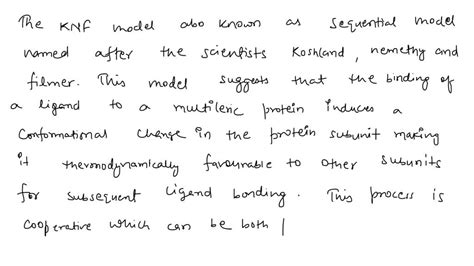 The KNF model also known as sequential model
named after the scientists Koshland, nemethy and
filmer. This model suggests that the binding of
a ligand to a multileric protein induces a
Conformational change in the protein subunit making
it thermodynamically favourable to other subunits
for subsequent ligand bonding. This process is
cooperative which can be both